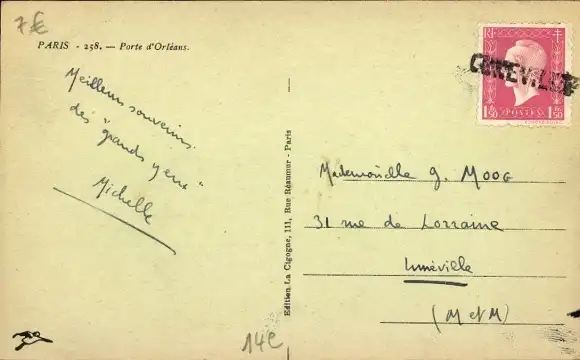 7€
PARIS - 258. — Porte d'Orléans.
Meilleurs souvenirs
des "grands yeux"
Michelle
Edition La Cigogne, 111, Rue Réaumur - Paris
RF
LUNEVILLE
1F50 POSTES 1F50
Mademoiselle G. MOOG
31 rue de Lorraine
Lunéville
(M et M)
14€